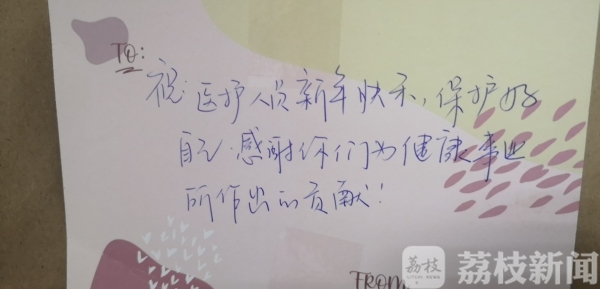 荔枝新闻
TO:
祝:医护人员新年快乐,保护好
自己.感谢你们为健康事业
所作出的贡献!
FROM
荔枝
荔枝新闻